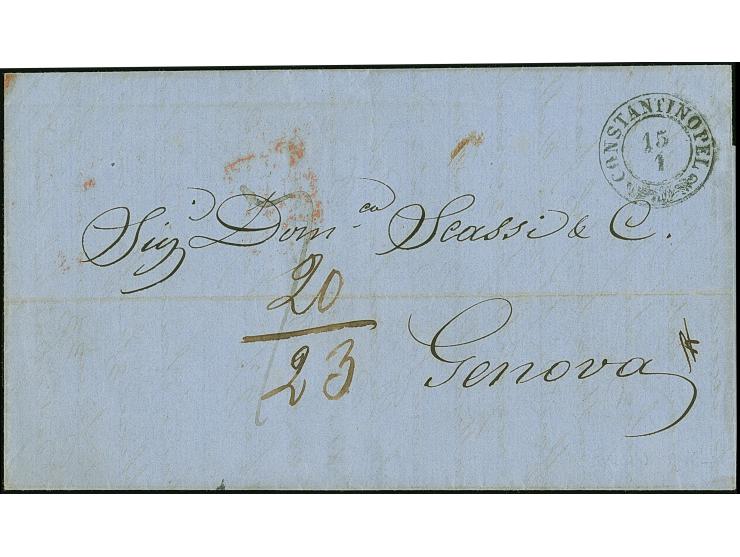 CONSTANTINOPEL
15
1
Sigi. Dom.co Scassi & C.
20
23
Genova